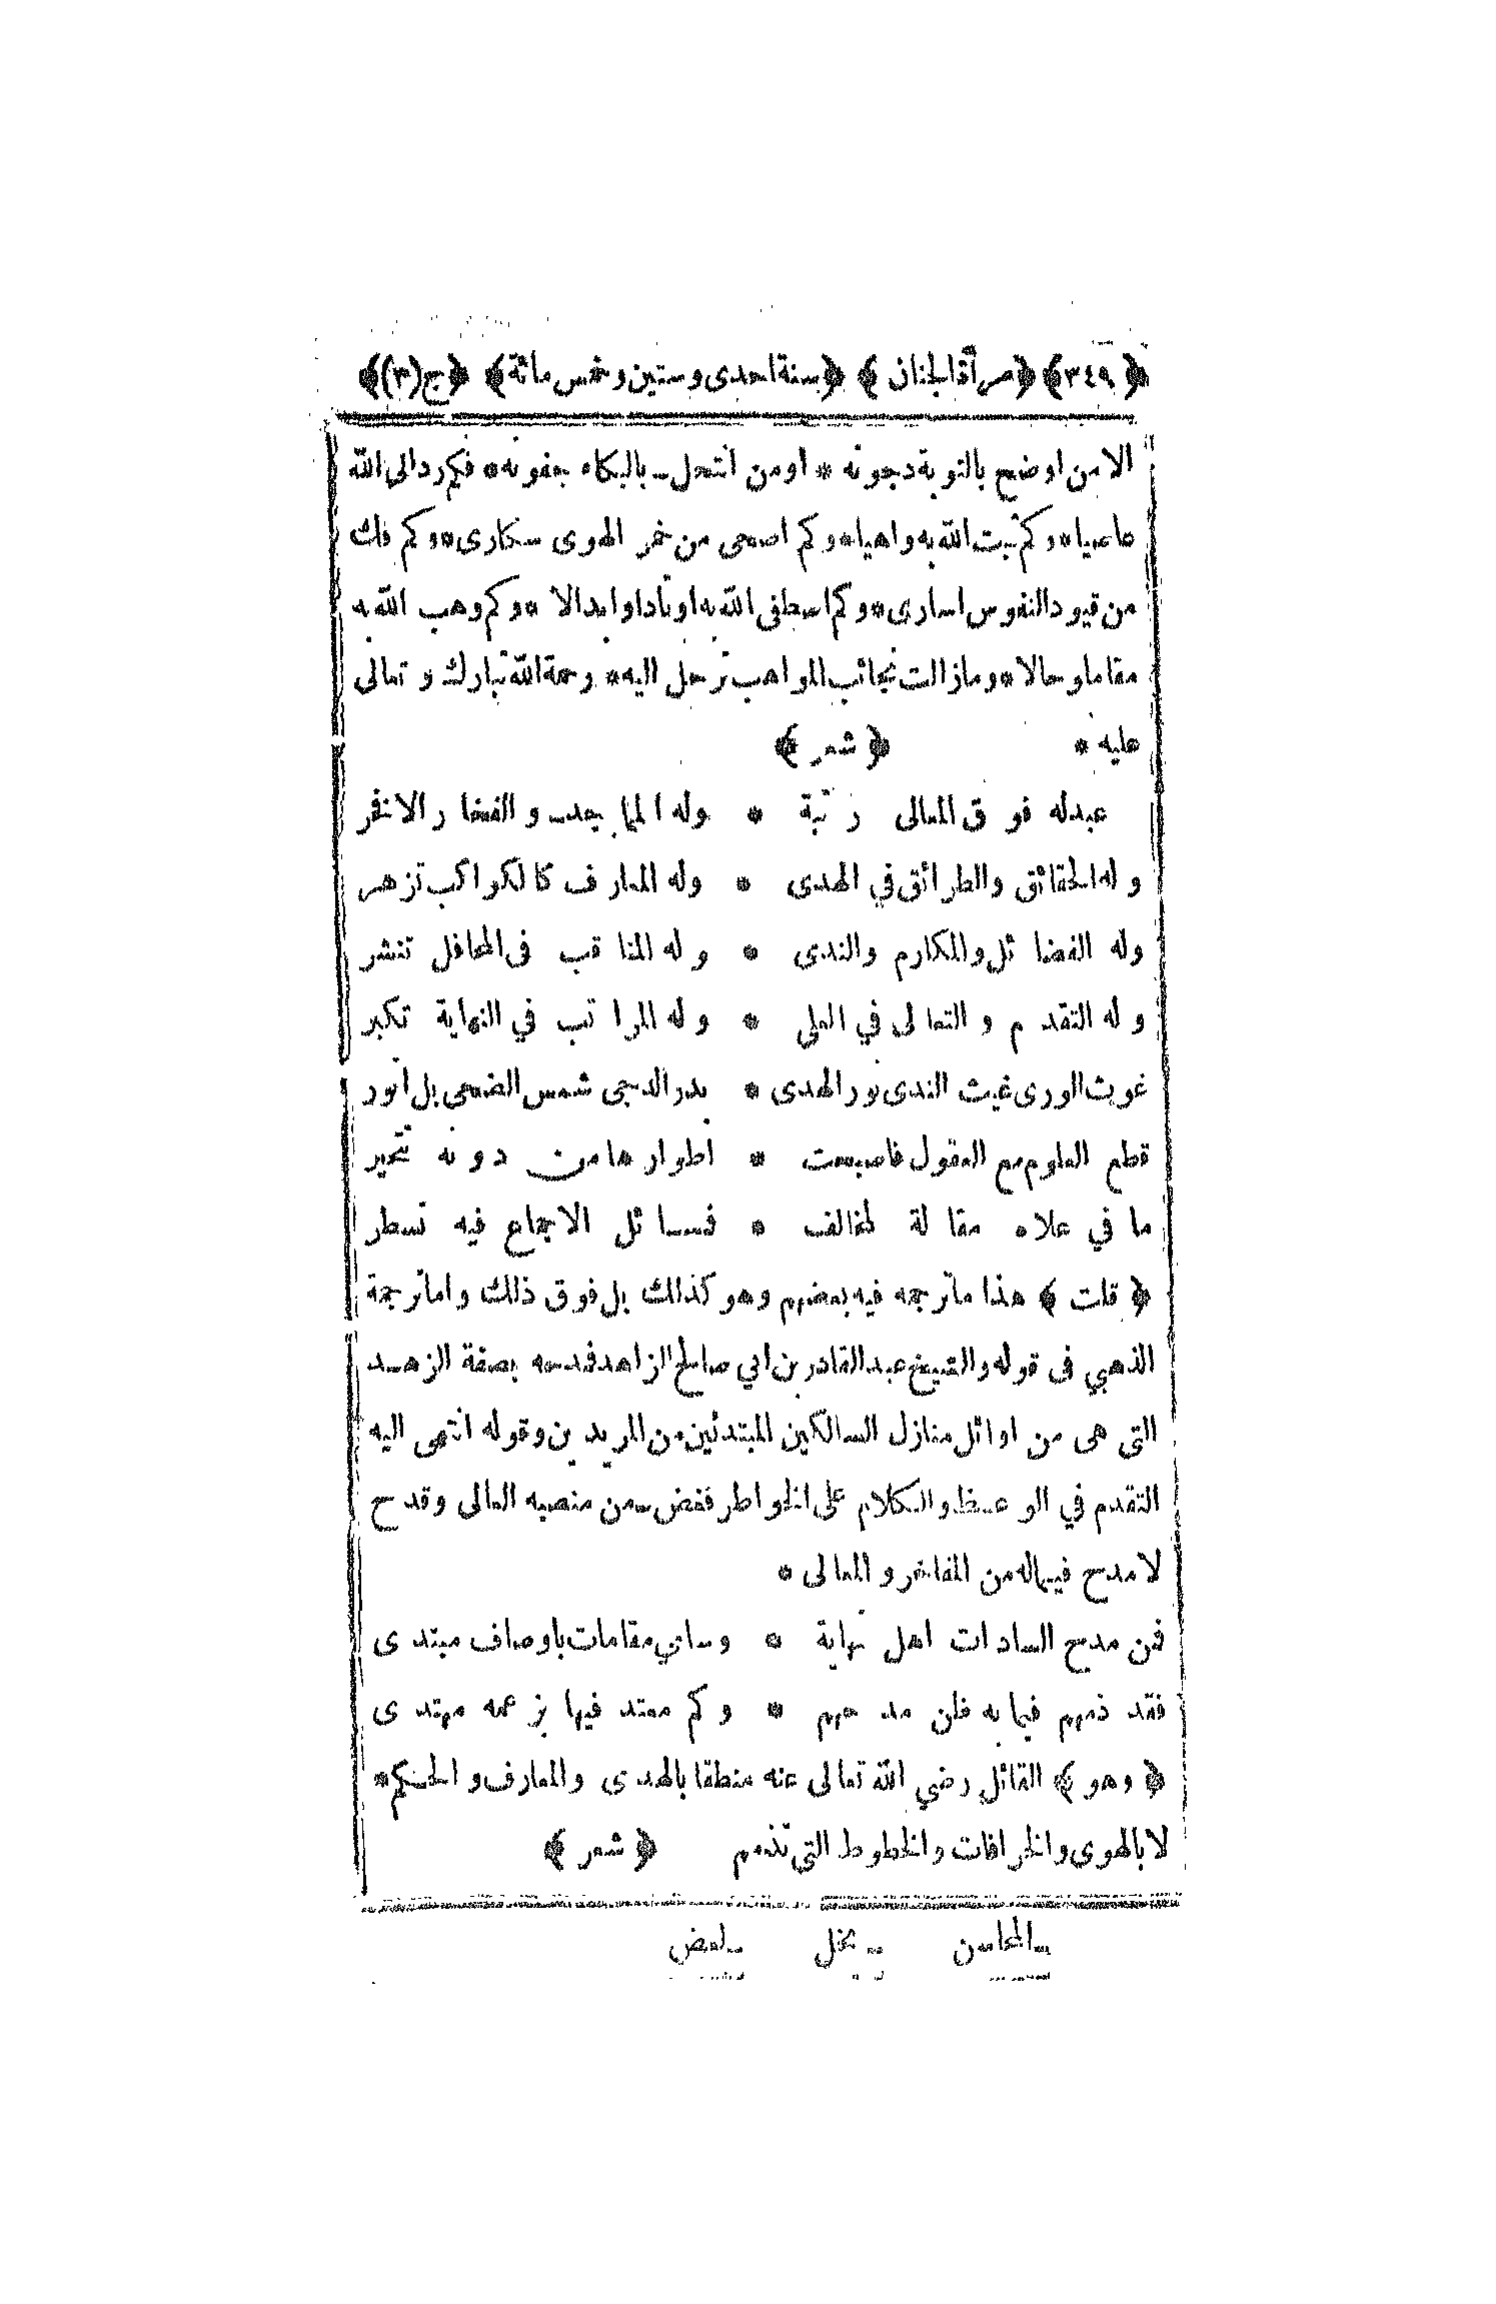 ﴿٣٤٩﴾ ﴿مرآة الجنان﴾ ﴿سنة احدى وستين وخمس مائة﴾ ﴿ج(٣)﴾
الا من اوضح بالتوبة دجونه * او من انتحل بالبكاء جفونه * فكم رد الى الله
عاصيا * وكم ثبت الله به واهيا * وكم اصحى من خمر الهوى سكارى * وكم فك
من قيود النفوس اسارى * وكم اصطفى الله به اوتادا وابدالا * وكم وهب الله به
مقاما وحالا * وما زالت نجائب المواهب ترحل اليه * رحمة الله تبارك وتعالى
عليه * ﴿شعر﴾
عبد له فوق المعالى رتبة * وله المماجد والفخار الافخر
وله الحقائق والطرائق في الهدى * وله المعارف كالكواكب تزهر
وله الفضائل والمكارم والندى * وله المناقب فى المحافل تنشر
وله التقدم والتعالى في العلى * وله المراتب في النهاية تكبر
غوث الورى غيث الندى نور الهدى * بدر الدجى شمس الضحى بل انور
قطع العلوم مع العقول فاصبحت * اطوارها من دونه تتحير
ما في علاه مقالة لمخالف * فمسائل الاجماع فيه تسطر
﴿قلت﴾ هذا ما ترجمه فيه بعضهم وهو كذلك بل فوق ذلك واما ترجمة
الذهبي فى قوله والشيخ عبد القادر بن ابي صالح الزاهد فمدحه بصفة الزهد
التى هى من اوائل منازل السالكين المبتدئين من المريدين وقوله انتهى اليه
التقدم في الوعظ والكلام على الخواطر فغض من منصبه العالى وقدح
لا مدح فيما له من المفاخر والمعالى *
فمن مدح السادات اهل نهاية * وسامي مقامات باوصاف مبتدى
فقد ذمهم فيما به ظن مدحهم * وكم معتد فيها بزعمه مهتدى
﴿وهو﴾ القائل رضي الله تعالى عنه منطقا بالهدى والمعارف والحكم *
لا بالهوى والخرافات والخطوط التى تذمم ﴿شعر﴾
المحاسن بخل لعض